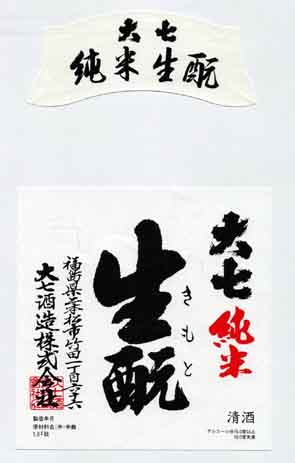 大七
純米生酛
大七
純米
生酛
きもと
福島県二本松市竹田一丁目六十六
大七酒造株式会社
清酒
製造年月
原材料名(米・米麹)
1.8ℓ詰